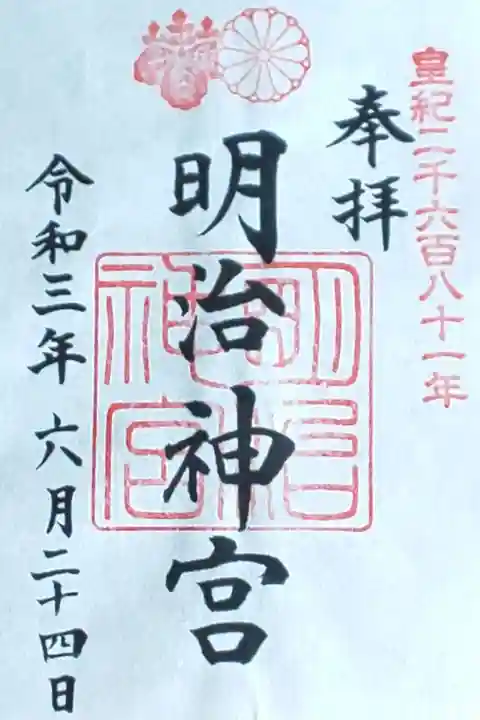 皇紀二千六百八十一年
奉拝
明治神宮
明治神宮
令和三年 六月二十四日